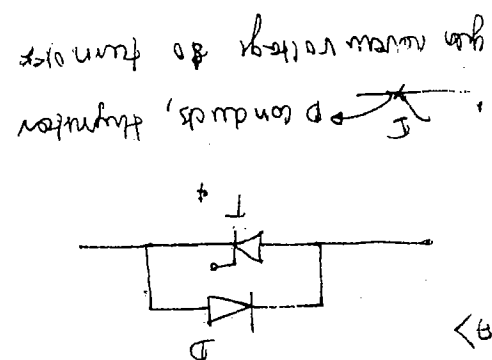 a>
D
T
I
D conducts, thyristor
reverse voltage so turn off